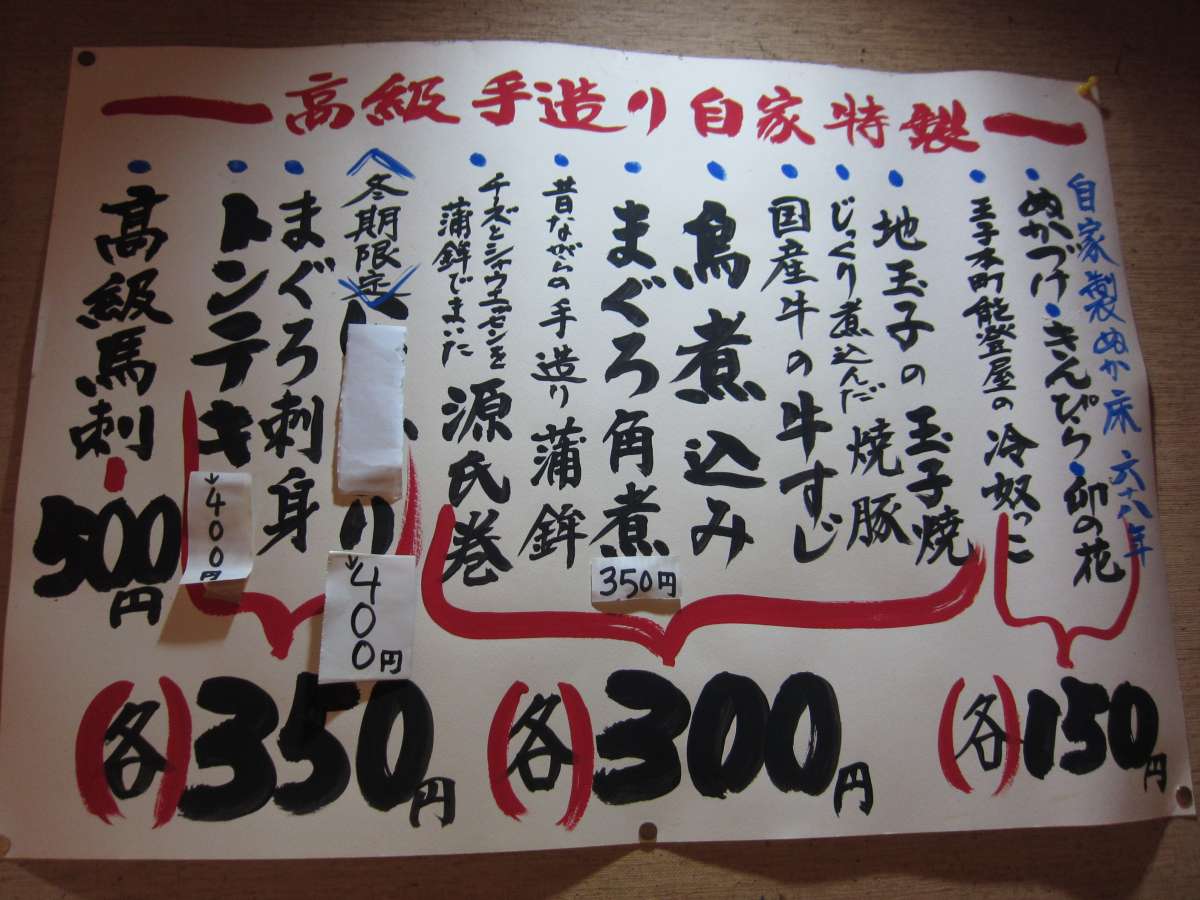 高級手造り自家特製
自家製ぬか床 六十八年
ぬかづけ・きんぴら・卯の花
王子本町能登屋の冷奴っこ
地玉子の玉子焼
じっくり煮込んだ焼豚
国産牛の牛すじ
鳥煮込み
まぐろ角煮
350円
昔ながらの手造り蒲鉾
チーズとシャウエッセンを
蒲鉾でまいた
源氏巻
冬期限定
り
→400円
まぐろ刺身
トンテキ
→400円
高級馬刺
500円
(各)150円
(各)300円
(各)350円